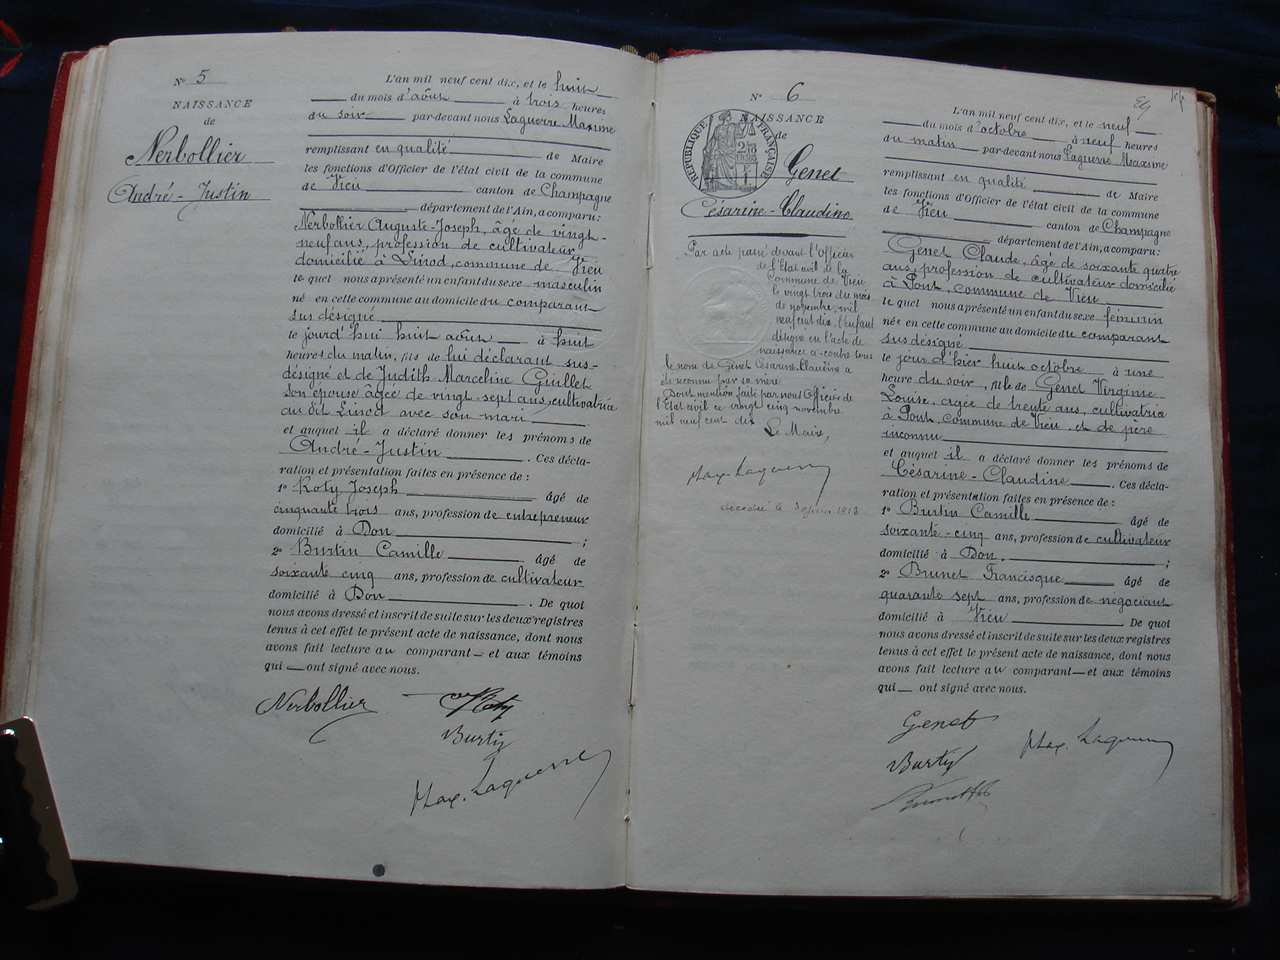 N° 5
NAISSANCE
de
Nerbollier
André-Justin
L'an mil neuf cent dix, et le huit
du mois d'août à trois heures
du soir par-devant nous Laguerre Maxime
remplissant en qualité de Maire
les fonctions d'Officier de l'état civil de la commune
de Vieu canton de Champagne
département de l'Ain, a comparu:
Nerbollier Auguste-Joseph, âgé de vingt-
neuf ans, profession de cultivateur,
domicilié à Linod, commune de Vieu
lequel nous a présenté un enfant du sexe masculin
né en cette commune au domicile du comparant
sus désigné
le jourd'hui huit août à huit
heures du matin, fils de lui déclarant sus-
désigné et de Judith Marceline Guillet
son épouse âgée de vingt-sept ans, cultivatrice
au dit Linod avec son mari
et auquel il a déclaré donner les prénoms de
André-Justin . Ces décla-
ration et présentation faites en présence de :
1° Koty Joseph âgé de
cinquante trois ans, profession de entrepreneur
domicilié à Don ;
2° Burtin Camille âgé de
soixante cinq ans, profession de cultivateur
domicilié à Don . De quoi
nous avons dressé et inscrit de suite sur les deux registres
tenus à cet effet le présent acte de naissance, dont nous
avons fait lecture au comparant et aux témoins
qui ont signé avec nous.
Nerbollier
Koty
Burtin
Max. Laguerre
N° 6
NAISSANCE
de
RÉPUBLIQUE FRANÇAISE
Genet
Césarine-Claudine
Par acte passé devant l'Officier
de l'Etat civil de la
Commune de Vieu
le vingt trois du mois
de novembre, mil
neuf cent dix, l'enfant
désigné en l'acte de
naissance ci-contre sous
le nom de Genet Césarine Claudine a
été reconnu par sa mère
Dont mention faite par nous Officier de
l'Etat civil ce vingt cinq novembre
mil neuf cent dix
Le Maire,
Max Laguerre
L'an mil neuf cent dix, et le neuf
du mois d'octobre à neuf heures
du matin par-devant nous Laguerre Maxime
remplissant en qualité de Maire
les fonctions d'Officier de l'état civil de la commune
de Vieu canton de Champagne
département de l'Ain, a comparu:
Genet Claude, âgé de soixante quatre
ans, profession de cultivateur domicilié
à Pont, commune de Vieu
lequel nous a présenté un enfant du sexe féminin
née en cette commune au domicile du comparant
sus désigné
le jour d'hier huit octobre à une
heure du soir, fille de Genet Virginie
Louise, agée de trente ans, cultivatrice
à Pont, commune de Vieu, et de père
inconnu
et auquel il a déclaré donner les prénoms de
Césarine-Claudine . Ces décla-
ration et présentation faites en présence de :
1° Burtin Camille âgé de
soixante-cinq ans, profession de cultivateur
domicilié à Don. ;
2° Brunet Francisque âgé de
quarante sept ans, profession de négociant
domicilié à Vieu . De quoi
nous avons dressé et inscrit de suite sur les deux registres
tenus à cet effet le présent acte de naissance, dont nous
avons fait lecture au comparant et aux témoins
qui ont signé avec nous.
Genet
Max. Laguerre
Burtin